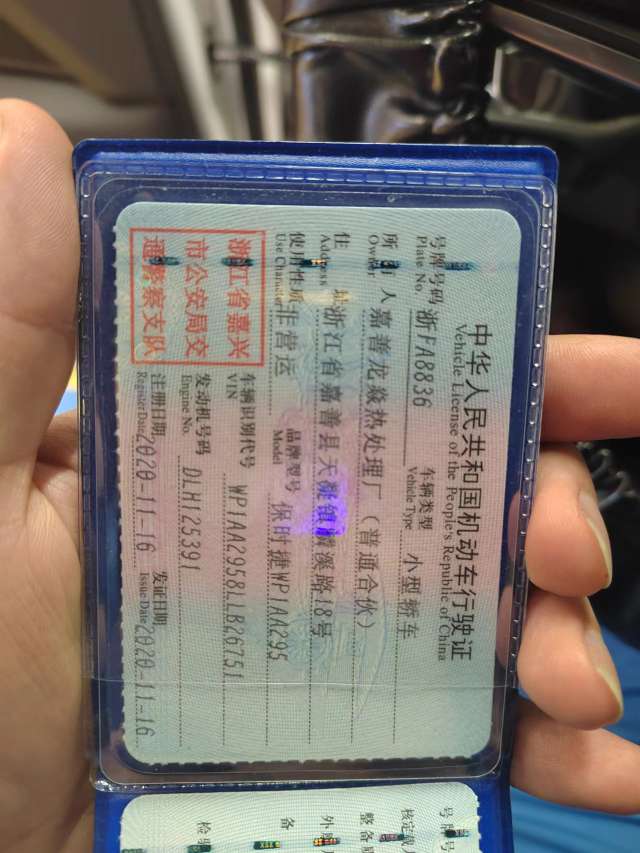 中华人民共和国机动车行驶证
Vehicle License of the People's Republic of China
号牌号码 浙FA8836 车辆类型 小型轿车
Plate No. Vehicle Type
所有人 嘉善龙焱热处理厂（普通合伙）
Owner
住 址 浙江省嘉善县天凝镇麟溪路18号
Address
使用性质 非营运 品牌型号 保时捷WP1AA295
Use Character Model
浙江省嘉兴
市公安局交
通警察支队
车辆识别代号 WP1AA2958LLB26751
VIN
发动机号码 DLH125391
Engine No.
注册日期 2020-11-16 发证日期 2020-11-16
Register Date Issue Date
号牌
核定载
整备质
外廓
备
检验